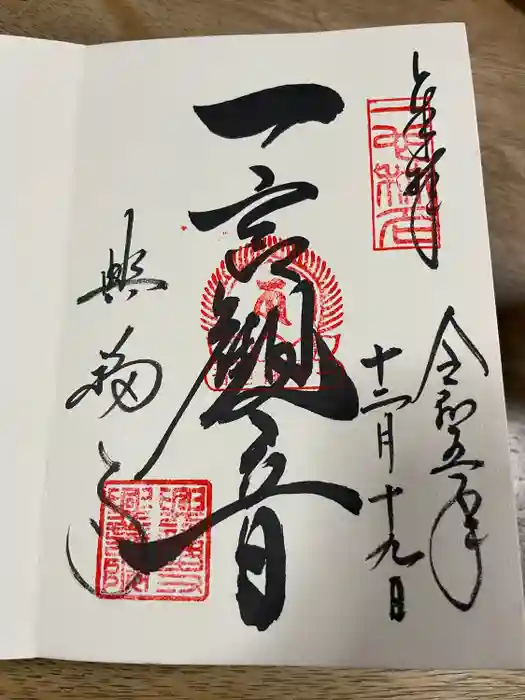 奉拝
令和五年
十二月十九日
一言觀音
興福寺